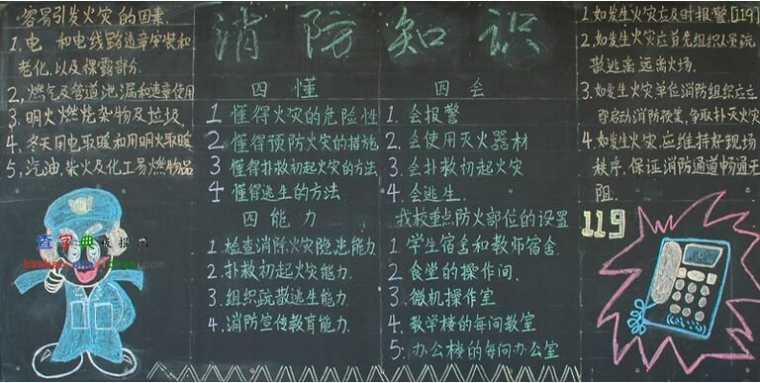 消防知识
容易引发火灾的因素
1.电 和电线路违章安装和
老化.以及裸露部分.
2,燃气及管道泄漏和违章使用
3,明火燃烧杂物及垃圾.
4,冬天用电取暖和用明火取暖
5,汽油.柴火及化工易燃物品
四懂
1 懂得火灾的危险性
2 懂得预防火灾的措施
3 懂得扑救初起火灾的方法
4 懂得逃生的方法
四能力
1.检查消除火灾隐患能力.
2.扑救初起火灾能力.
3.组织疏散逃生能力.
4.消防宣传教育能力.
四会
1.会报警
2.会使用灭火器材
3.会扑救初起火灾
4.会逃生.
我校重点防火部位的设置
1.学生宿舍和教师宿舍.
2 食堂的操作间.
3.微机操作室
4.教学楼的每间教室
5.办公楼的每间办公室
1.如发生火灾应及时报警.[119]
2.如发生火灾应首先组织人员疏
散逃离远离火场.
3.如发生火灾单位消防组织应立
即启动消防预案,争取扑灭火灾
4.如发生火灾.应维持好现场
秩序.保证消防通道畅通无
阻.
119
查字典